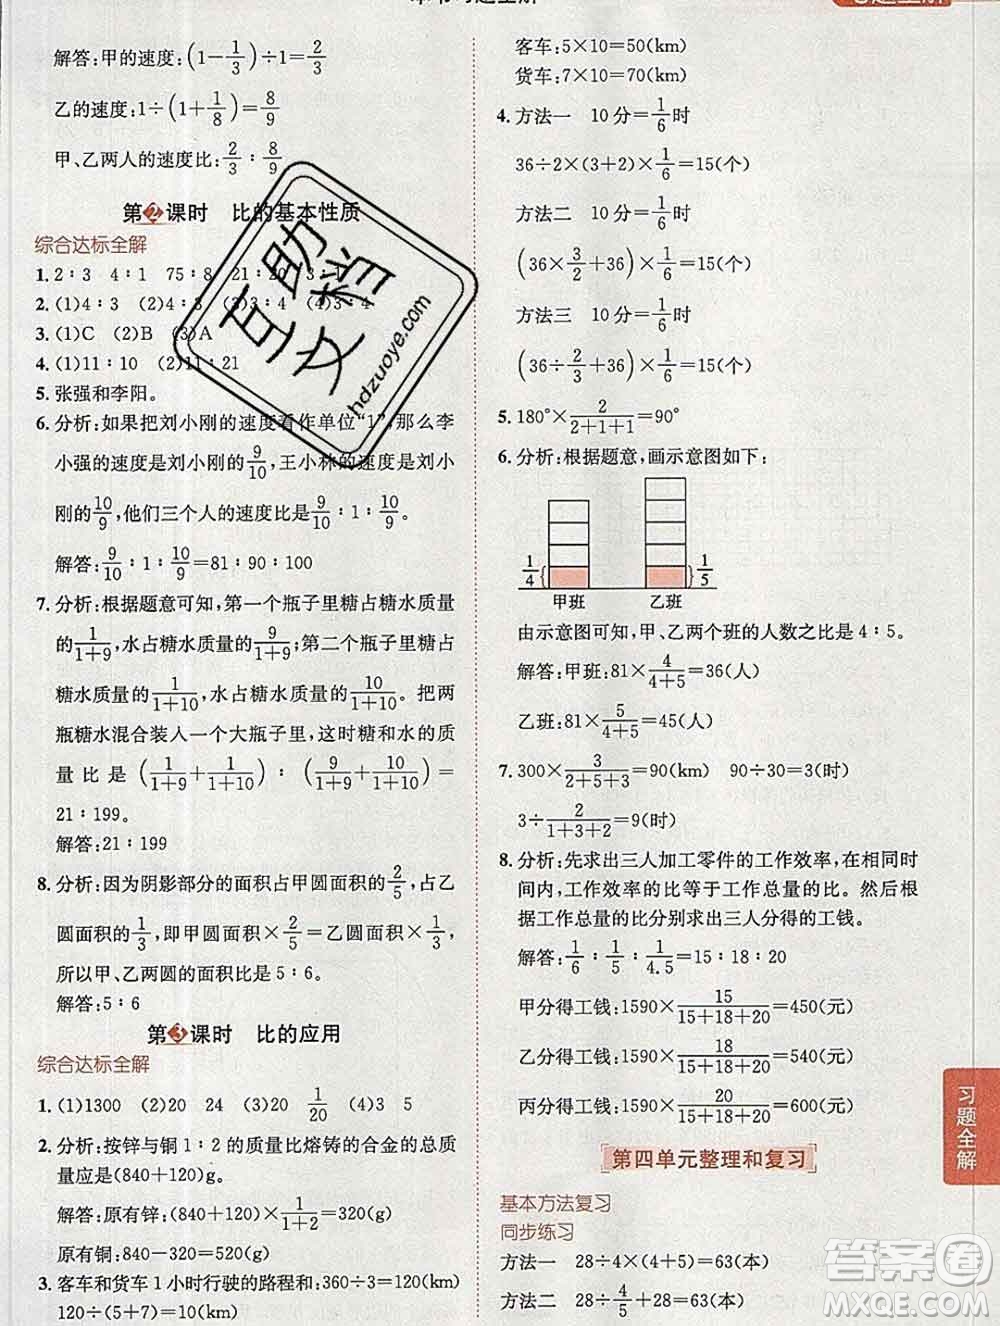 解答:甲的速度:(1−1/3)÷1=2/3
乙的速度:1÷(1+1/8)=8/9
甲、乙两人的速度比:2/3∶8/9
第2课时 比的基本性质
综合达标全解
1.2∶3 4∶1 75∶8 21∶20 3∶1
2.(1)4∶3 (2)4∶3 (3)3∶4 (4)3∶4
3.(1)C (2)B (3)A
4.(1)11∶10 (2)11∶21
5.张强和李阳。
6.分析:如果把刘小刚的速度看作单位“1”,那么李
小强的速度是刘小刚的9/10,王小林的速度是刘小
刚的10/9,他们三个人的速度比是9/10∶1∶10/9。
解答:9/10∶1∶10/9=81∶90∶100
7.分析:根据题意可知,第一个瓶子里糖占糖水质量
的1/(1+9),水占糖水质量的9/(1+9);第二个瓶子里糖占
糖水质量的1/(1+10),水占糖水质量的10/(1+10)。把两
瓶糖水混合装入一个大瓶子里,这时糖和水的质
量比是(1/(1+9)+1/(1+10))∶(9/(1+9)+10/(1+10))=
21∶199。
解答:21∶199
8.分析:因为阴影部分的面积占甲圆面积的2/5,占乙
圆面积的1/3,即甲圆面积×2/5=乙圆面积×1/3,
所以甲、乙两圆的面积比是5∶6。
解答:5∶6
第3课时 比的应用
综合达标全解
1.(1)1300 (2)20 24 (3)120 1/20 (4)3 5
2.分析:按锌与铜1∶2的质量比熔铸的合金的总质
量应是(840+120)g。
解答:原有锌:(840+120)×1/(1+2)=320(g)
原有铜:840−320=520(g)
3.客车和货车1小时行驶的路程和:360÷3=120(km)
120÷(5+7)=10(km)
客车:5×10=50(km)
货车:7×10=70(km)
4.方法一 10分=1/6时
36÷2×(3+2)×1/6=15(个)
方法二 10分=1/6时
(36×3/2+36)×1/6=15(个)
方法三 10分=1/6时
(36÷2/3+36)×1/6=15(个)
5.180°×2/(2+1+1)=90°
6.分析:根据题意,画示意图如下:
1/4 1/5
甲班 乙班
由示意图可知,甲、乙两个班的人数之比是4∶5。
解答:甲班:81×4/(4+5)=36(人)
乙班:81×5/(4+5)=45(人)
7.300×3/(2+5+3)=90(km) 90÷30=3(时)
3÷2/(1+3+2)=9(时)
8.分析:先求出三人加工零件的工作效率,在相同时
间内,工作效率的比等于工作总量的比。然后根
据工作总量的比分别求出三人分得的工钱。
解答:1/6∶1/5∶1/4.5=15∶18∶20
甲分得工钱:1590×15/(15+18+20)=450(元)
乙分得工钱:1590×18/(15+18+20)=540(元)
丙分得工钱:1590×20/(15+18+20)=600(元)
第四单元整理和复习
基本方法复习
同步练习
方法一 28÷4×(4+5)=63(本)
方法二 28÷4/5+28=63(本)
习题全解
百助文档
hdzuoye.com
答案圈
MXQE.COM